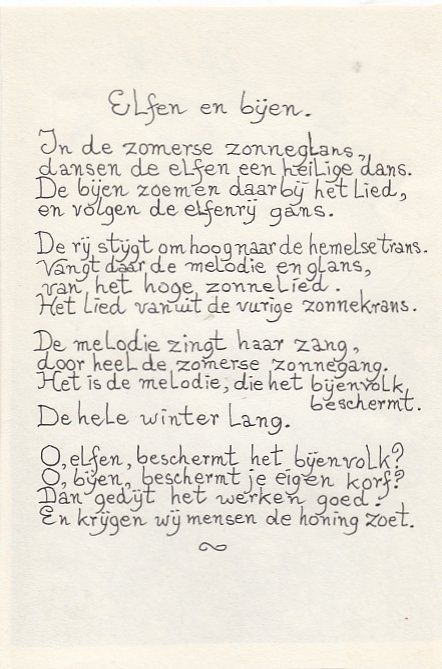 Elfen en bijen.
In de zomerse zonneglans,
dansen de elfen een heilige dans.
De bijen zoemen daarbij het lied,
en volgen de elfenrij gans.
De rij stijgt omhoog naar de hemelse trans.
Vangt daar de melodie en glans,
van het hoge zonnelied.
Het lied vanuit de vurige zonnekrans.
De melodie zingt haar zang,
door heel de zomerse zonnegang.
Het is de melodie, die het bijenvolk
beschermt.
De hele winter lang.
O, elfen, beschermt het bijenvolk?
O, bijen, beschermt je eigen korf?
Dan gedijt het werken goed!
En krijgen wij mensen de honing zoet.